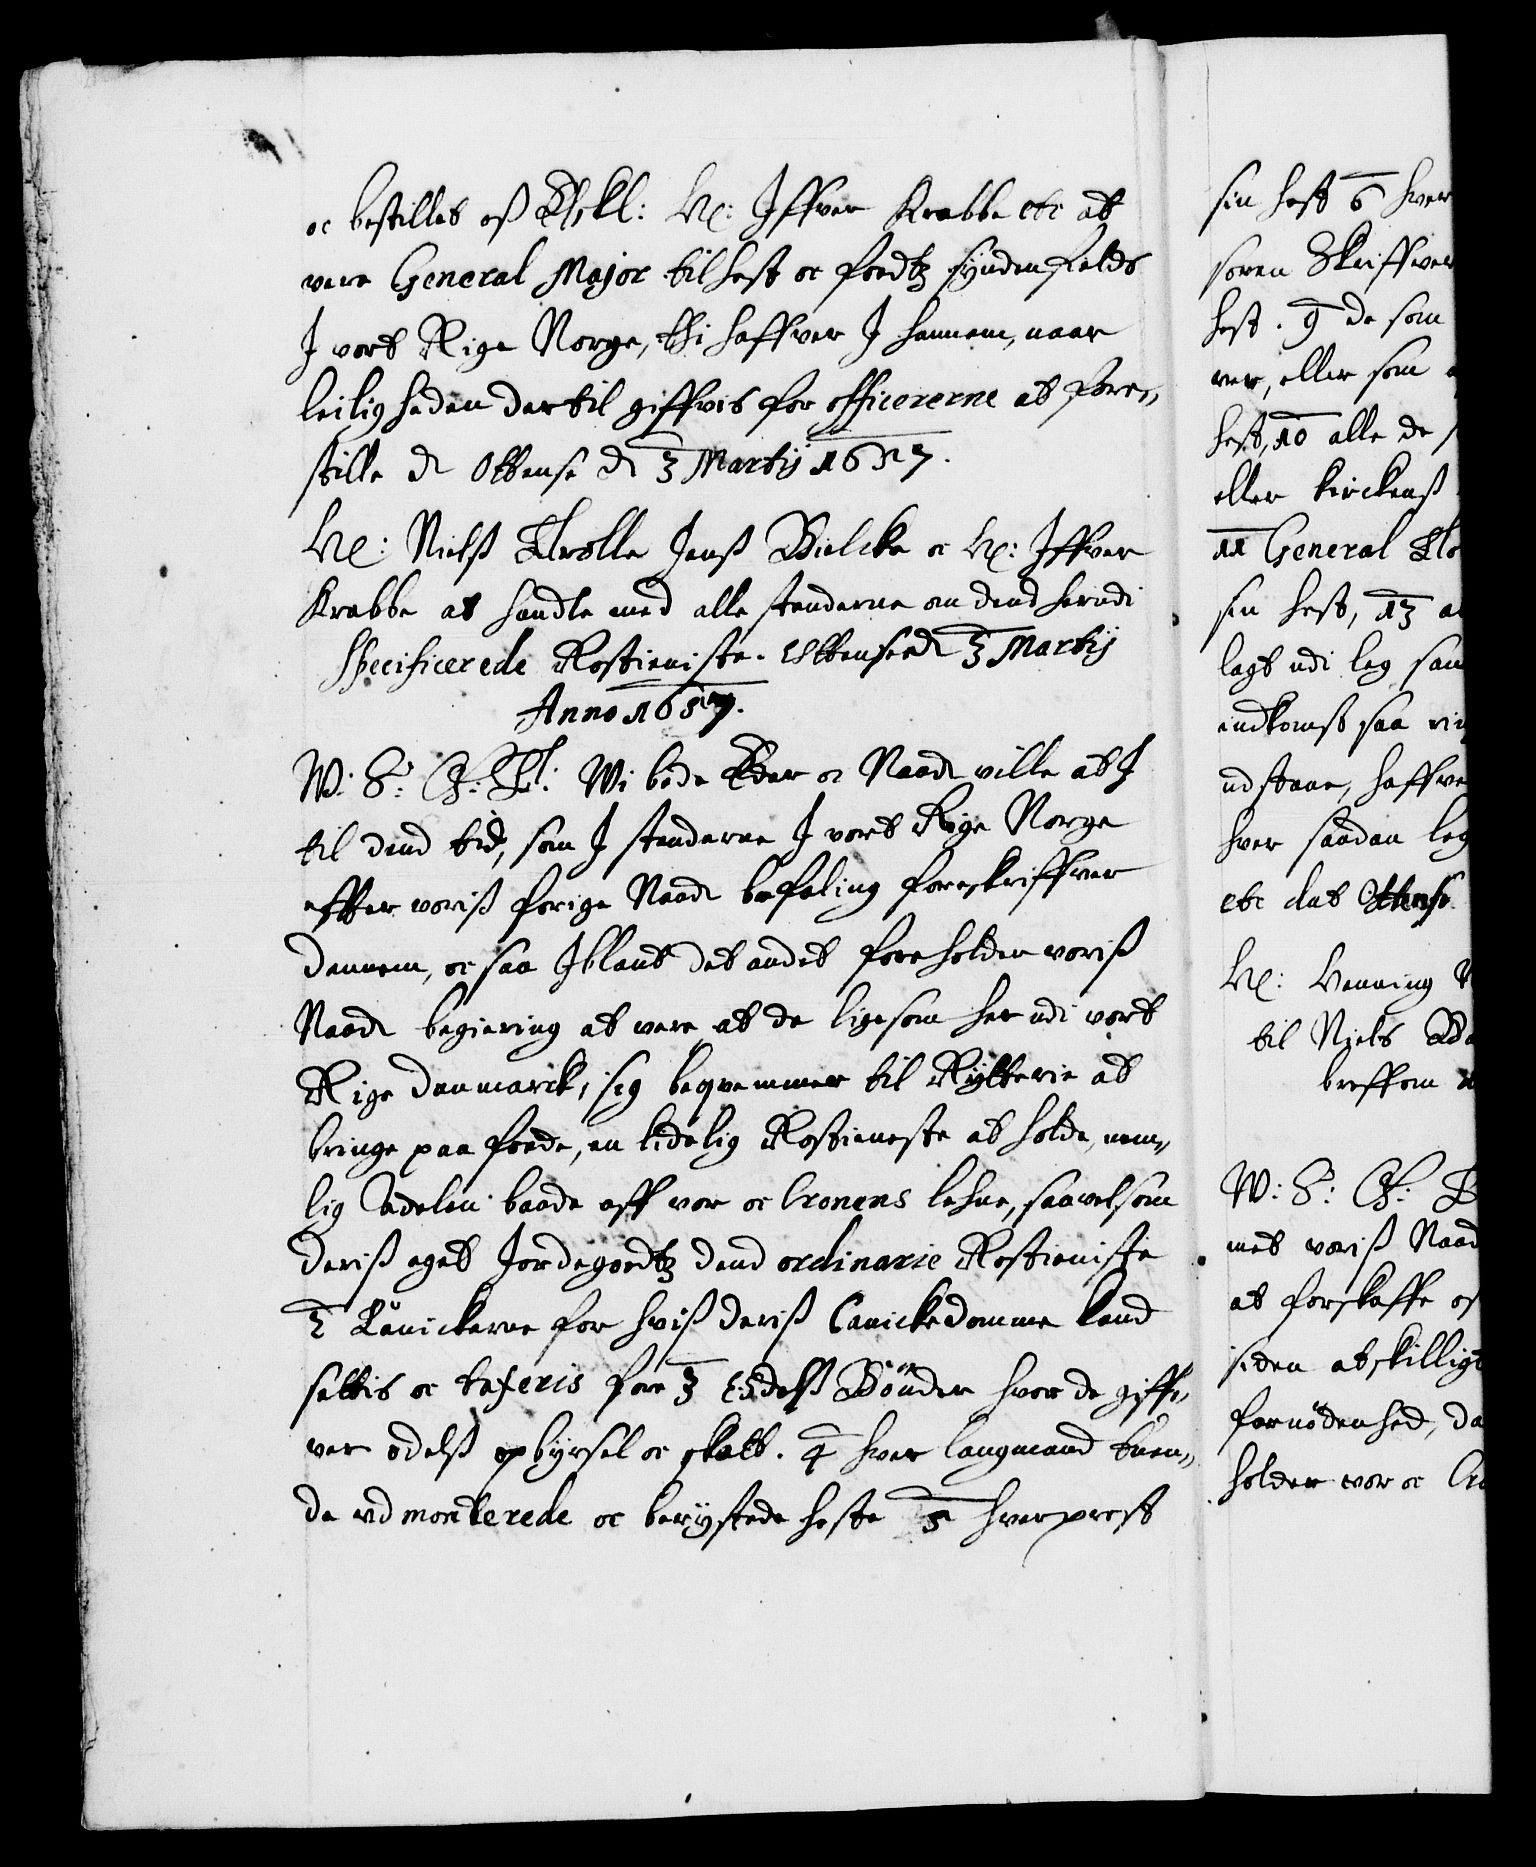 oc bestillet oß Elskl: H: Iffver Krabbe etc at
vere General Major til hest oc foedtz sÿndenfields
I vort Rige Norge, thi haffver I hannem, naar
leiligheden dertil giffvis for officererne at fore,,
stille dt Ottense dt 3 Martij 1657.
H: Nielß Trolle Jenß Bielcke oc H: Iffver
Krabbe at handle med alle stenderne om dend herudi
specificerede Rostieniste. Ottense dt 3 Martij
Anno 1657.
W: S: G: T: Wi bede Eder oc Naadt ville at I
til dend tid, som I stenderne I vort Rige Norge
effter voriß forige Naadt befaling foreskriffver
dennem, oc saa Iblant det andet foreholder voriß
Naadt begiering at vere at de ligesom her udi vort
Rige Danmarck, sig beqvemmer til Rÿtterie at
bringe paa foede, en lidelig Rostieneste at holde, nem,,
lig Adelen baade aff vor oc Cronens lehne, saavelsom
deriß eget Jordegoedtz dend ordinarie Rostieniste
2 Canickerne for hviß deriß Canickedomme kand
settis oc taxeris fore 3 Odelß Bönder hvor de giff,,
ver odelß opbÿrsel oc skatt. 4 hver laugmand tuen,,
de vd monterede oc berÿstede heste 5 hver prest
sin hest 6 hver
soren Skriffver
hest. 9 de som
ver, eller som
hest, 10 alle de
eller kirckenß
11 General
sin hest, 13
lagt udi leg
indkomst saa
udstaae, haffve
hver saadan leg
etc dat Othense
H: Henning
til Niels
breffom
W: S: G:
met voriß Naad
at forskaffe
siden atskillige
fornödenhed, da
holder vor oc